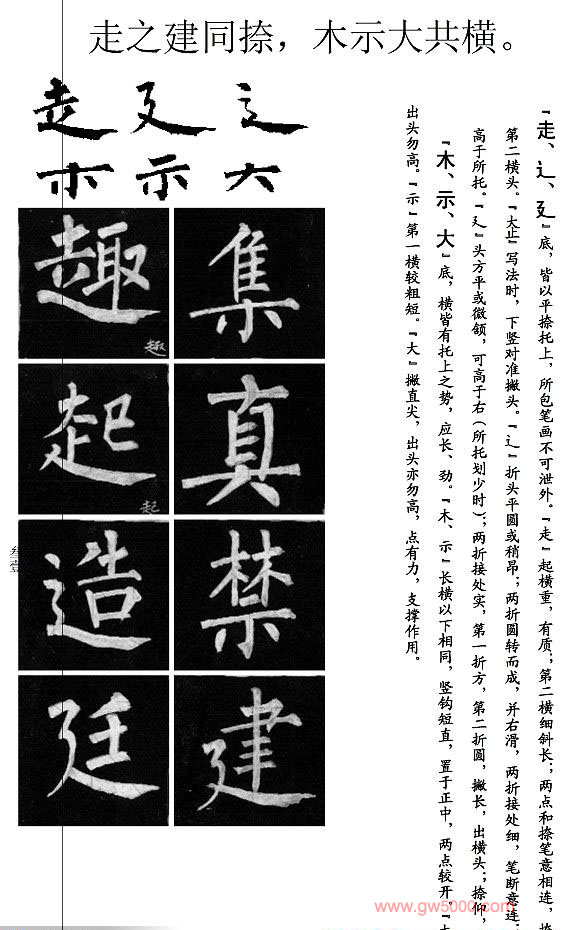 走之建同捺，木示大共横。
走 廴 辶
示 大
『走、辶、廴』底，皆以平捺托上，所包笔画不可泄外。『走』起横重，有质；第二横细斜长；两点和捺笔意相连，
第二横头。『大止』写法时，下竖对准撇头。『辶』折头平圆或稍昂；两折圆转而成，并右滑，两折接处细，笔断意连；
高于所托。『廴』头方平或微颔，可高于右（所托划少时）；两折接处实，第一折方，第二折圆，撇长，出横头；捺仰，
『木、示、大』底，横皆有托上之势，应长、劲。『木、示』长横以下相同，竖钩短直，置于正中，两点较开，
出头勿高。『示』第一横较粗短。『大』撇直尖，出头亦勿高，点有力，支撑作用。
集
真
禁
建
趣
趣
起
起
造
廷
叁壹
www.gw5000.com